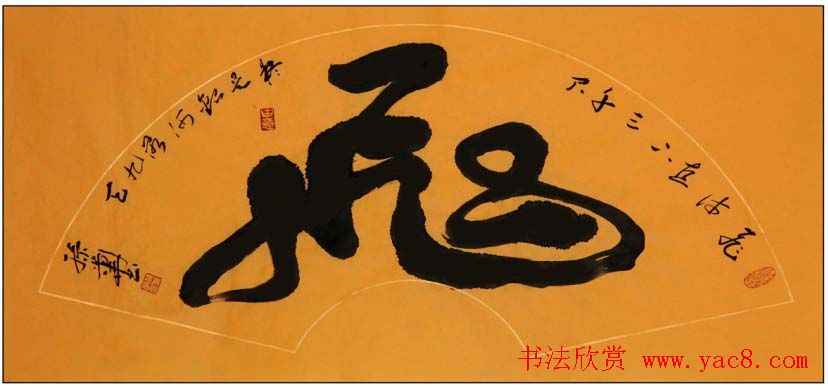 飛
飞流直下三千尺
疑是银河落九天
书法欣赏 www.yac8.com